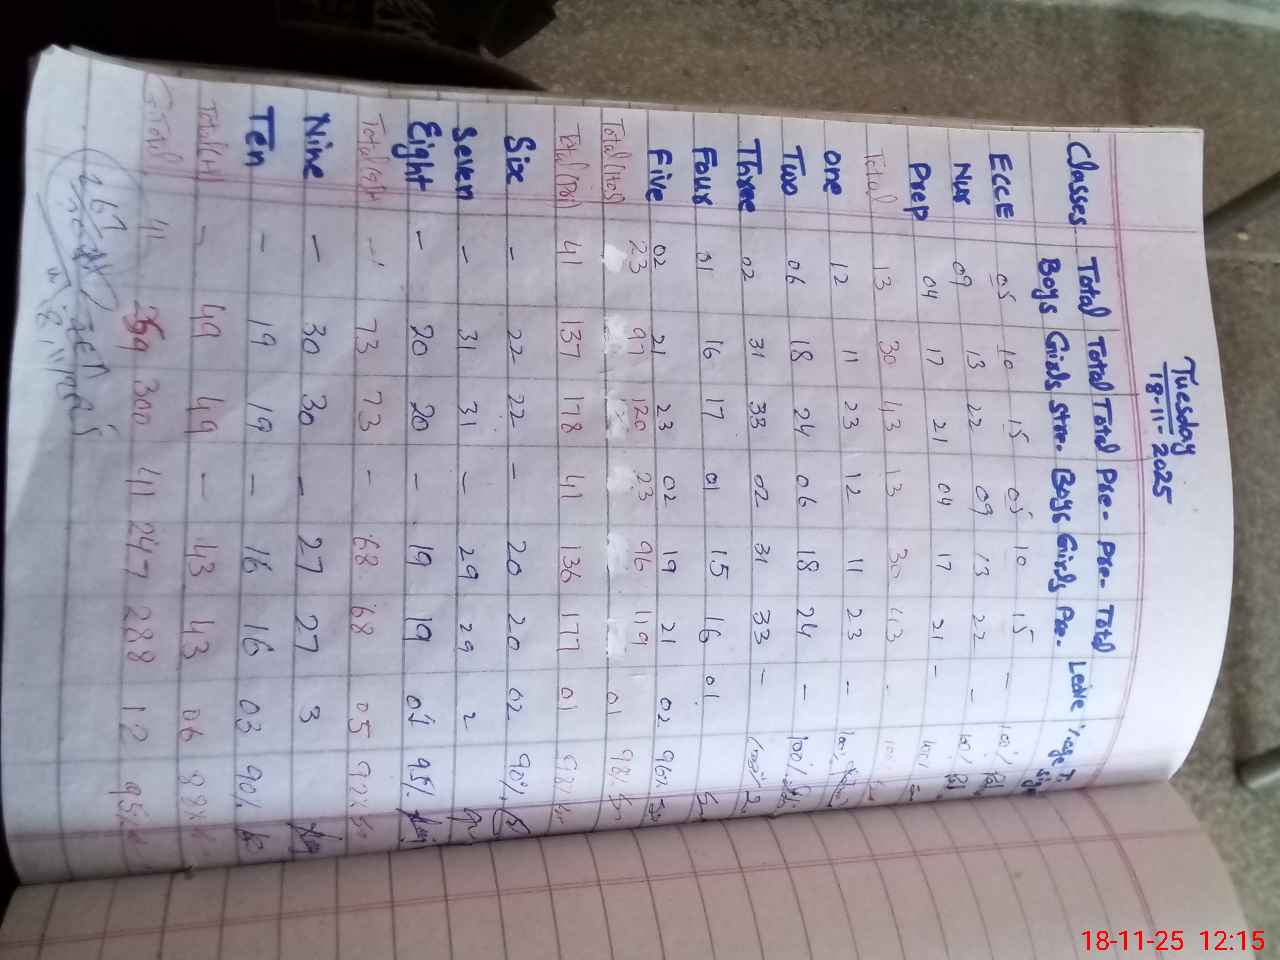 Tuesday
18-11-2025
Classes Total Total Total Pre- Pre- Total Leave %age T.
Boys Girls Stre. Boys Girls Pre. sign
ECCE 05 10 15 05 10 15 - 100%
Nur 09 13 22 09 13 22 - 100%
Prep 04 17 21 04 17 21 - 100%
Total 13 30 43 13 30 43 -
one 12 11 23 12 11 23 - 100%
Two 06 18 24 06 18 24 - 100%
Three 02 31 33 02 31 33 - 100%
Four 01 16 17 01 15 16 01
Five 02 21 23 02 19 21 02 96%
23 97 120 23 96 119 01 98%
41 137 178 41 136 177 01 98%
Six - 22 22 - 20 20 02 90%
Seven - 31 31 - 29 29 2
Eight - 20 20 - 19 19 01 95%
Total 73 73 - 68 68 05 92%
Nine - 30 30 - 27 27 3
Ten - 19 19 - 16 16 03 90%
Total(H) - 49 49 - 43 43 06 88%
G.Total 41 259 300 41 247 288 12 95%
18-11-25 12:15